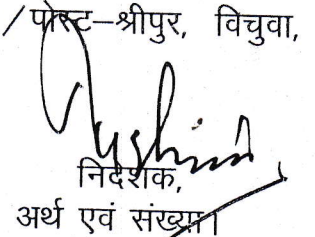 /पोस्ट–श्रीपुर, विचुवा,
निदेशक,
अर्थ एवं संख्या।